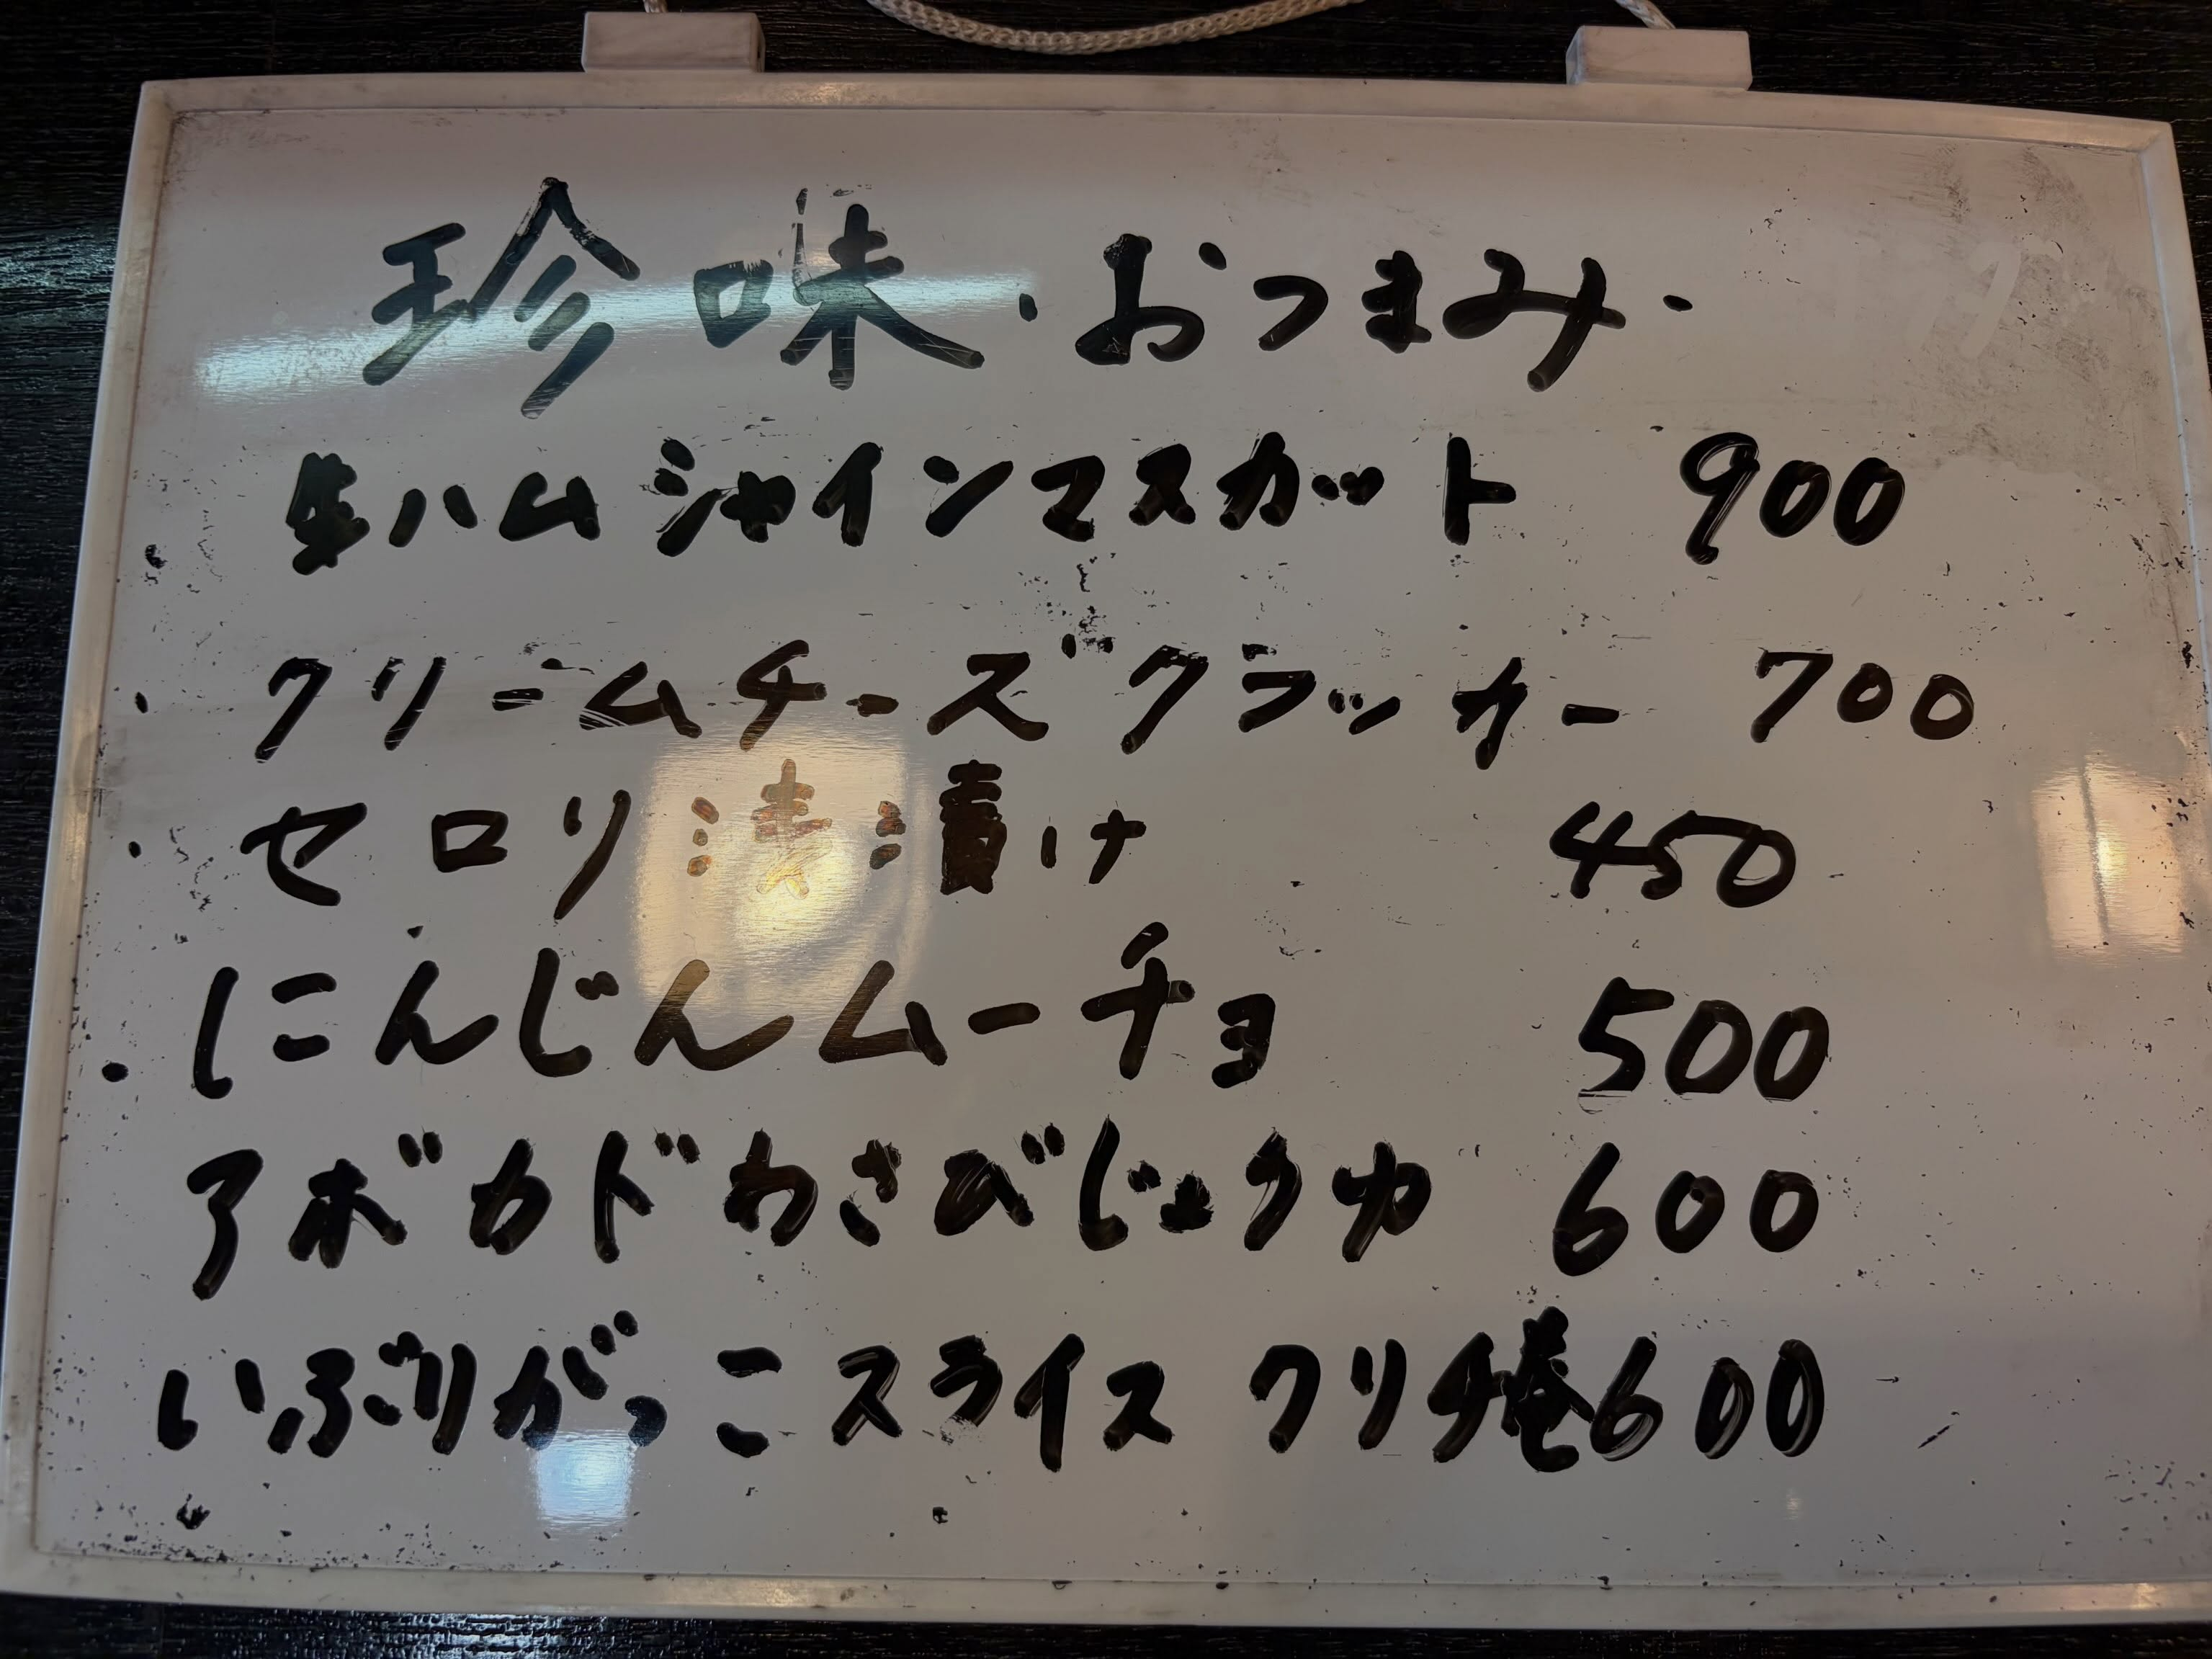 珍味・おつまみ・
生ハムシャインマスカット 900
・クリームチーズクラッカー 700
・セロリ浅漬け 450
・にんじんムーチョ 500
アボカドわさびじょうゆ 600
いぶりがっこスライス クリチ 600